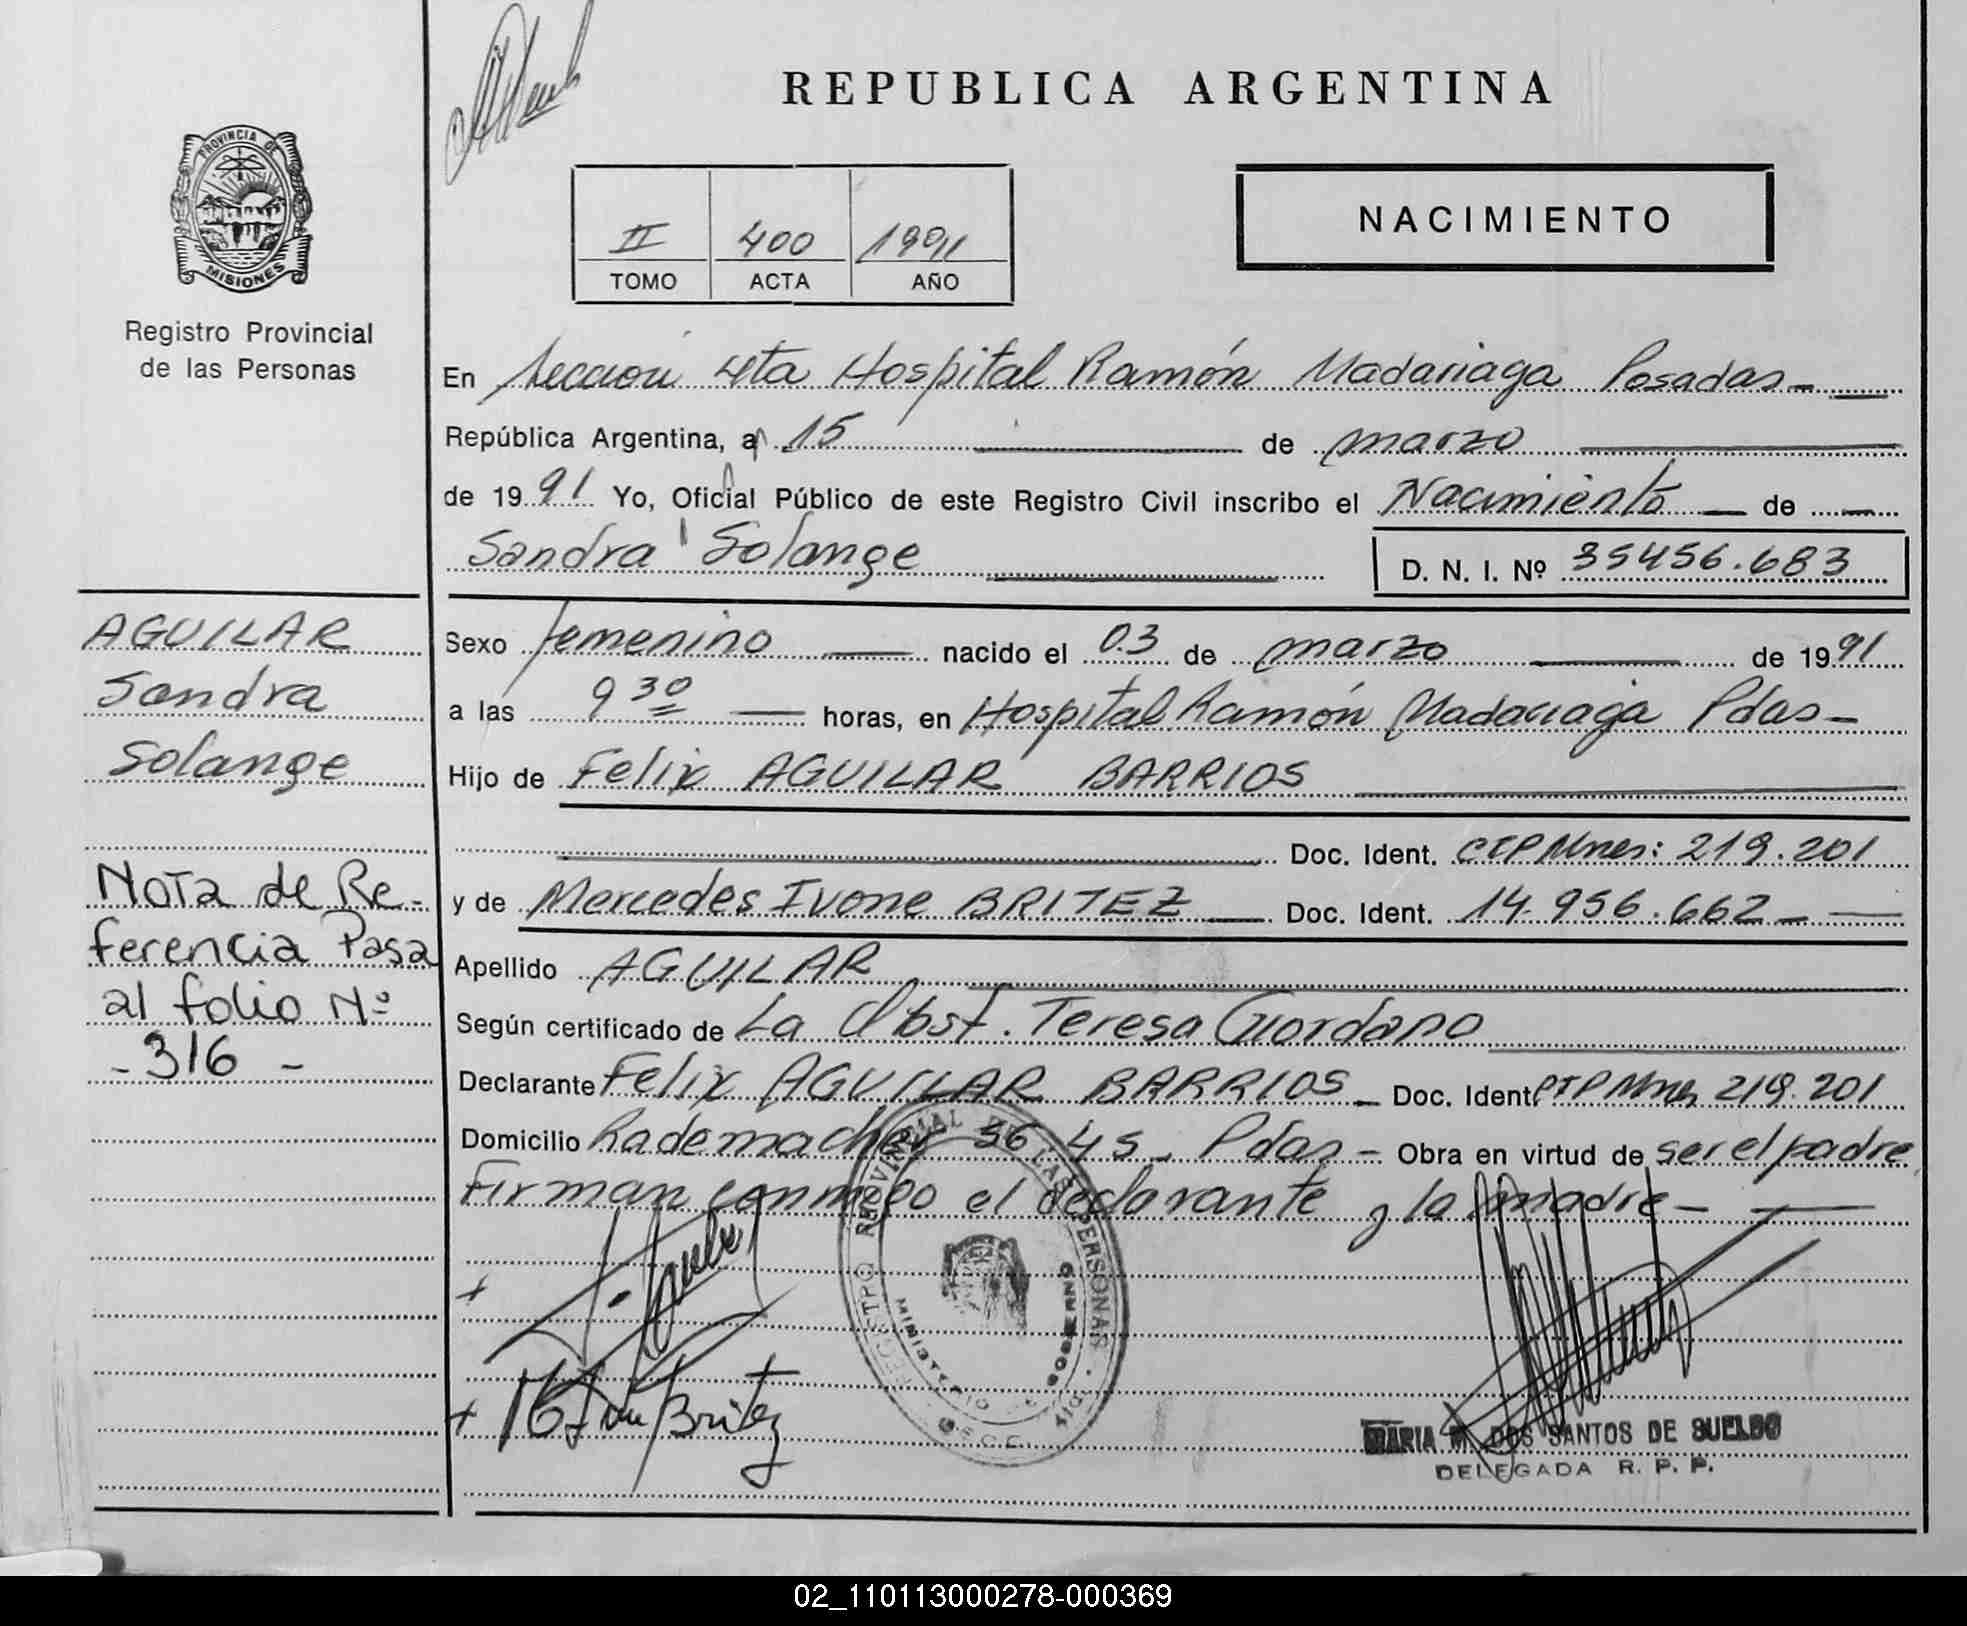 REPUBLICA ARGENTINA
PROVINCIA DE
MISIONES
Registro Provincial
de las Personas
II 400 1991
TOMO ACTA AÑO
NACIMIENTO
En Sección 4ta Hospital Ramón Madariaga Posadas
República Argentina, a 15 de marzo
de 1991 Yo, Oficial Público de este Registro Civil inscribo el Nacimiento de
Sandra Solange D. N. I. Nº 35456.683
AGUILAR
Sandra
Solange
Nota de Re-
ferencia Pasa
al folio Nº
- 316 -
Sexo femenino nacido el 03 de marzo de 1991
a las 9 30 horas, en Hospital Ramón Madariaga Pdas-
Hijo de Felix AGUILAR BARRIOS
Doc. Ident. CIPMnes: 219.201
y de Mercedes Ivone BRITEZ Doc. Ident. 14.956.662
Apellido AGUILAR
Según certificado de La Obst. Teresa Giordano
Declarante Felix AGUILAR BARRIOS Doc. Ident. CIPMnes 219.201
Domicilio Rademacher 3645 Pdas- Obra en virtud de ser el padre
Firman conmigo el declarante y la madre-
REGISTRO PROVINCIAL DE LAS PERSONAS
MINISTERIO DE GOBIERNO
Britez
MARIA M. DOS SANTOS DE SUELDO
DELEGADA R. P. P.
02_110113000278-000369